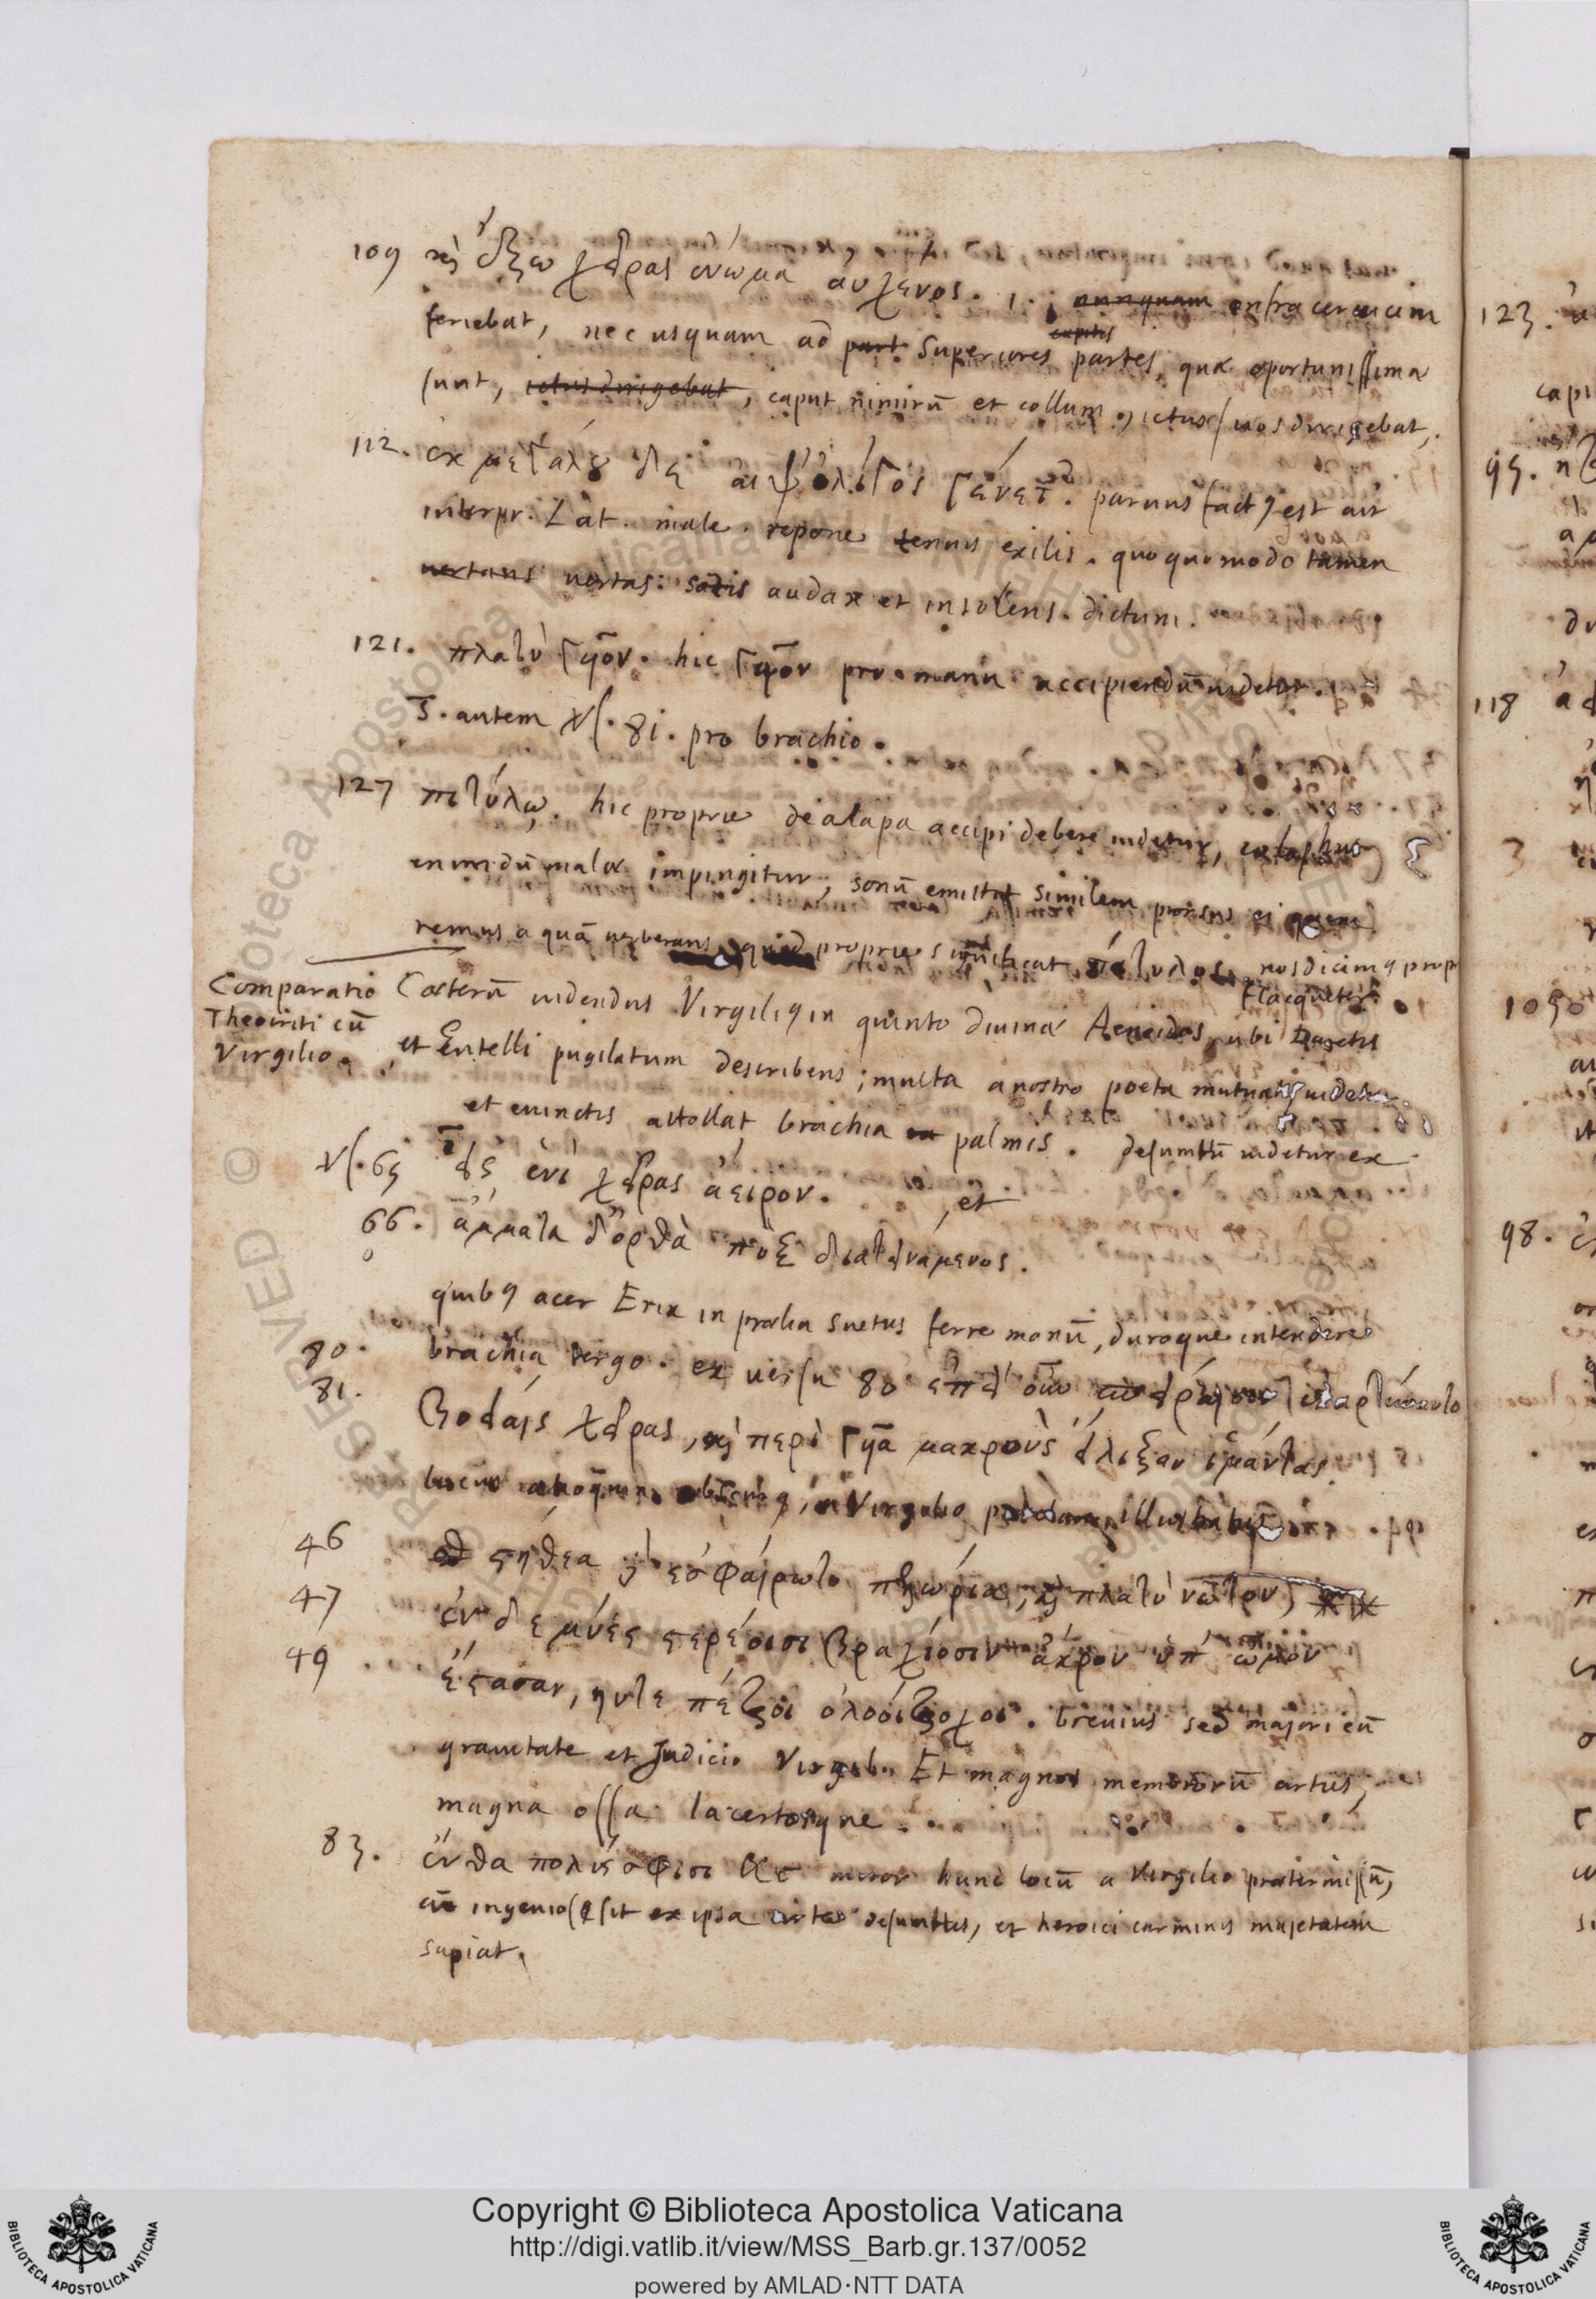 109 καὶ ἔξω χεῖρας ἐνώμα αὐχένος. i. nunquam extra ceruicem
feriebat, nec usquam ad part superiores capitis partes, quæ oportunissima
sunt, ictus dirigebat, caput nimirū et collum, ictus suos dirigebat,
112. ἐκ μεγάλου δὲ αἶψ' ὀλίγος γένετ'. paruus factꝯ est ait
interpr. Lat. male. repone tenuis exilis. quoquomodo tamen
uertans uertas: satis audax et insolens dictum.
121. πλατὺ γυῖον. hic γυῖον pro manu accipiendū uidetur.
S. autem vs. 81. pro brachio.
127 πιτύλῳ. hic proprie de alapa accipi debere uidetur,
enim dū malæ impingitur, sonū emittit similem prorsus ei quem
remus aquā uerberans, quod proprie significat πίτυλος, nos dicimꝯ prop
flacqueter.
Comparatio
Theocriti cū
Virgilio.
Cæterū uidendus Virgiliꝯ in quinto diuinæ Aeneidos, ubi Daretis
et Entelli pugilatum describens; multa a nostro poeta mutuatꝯ uidetur.
et euinctis attollat brachia palmis. desumtū uidetur ex
vs. 65 ἐνὶ χεῖρας ἄειρον. , et
66. ὄμματα δ' ὀρθὰ πὺξ διατεινάμενος.
quibꝯ acer Erix in prælia suetus ferre manū, duroque intendere
80. brachia tergo. ex uersu 80 ἐπεὶ οὖν
81. βοείαις χεῖρας, καὶ περὶ γυῖα μακροὺς εἵλιξαν ἱμάντας
locus alioquin in Virgilio
46 στήθεα δ' ἐσφαίρωτο πελώρια, καὶ πλατὺ νῶτον,
47 ἐν δὲ μύες στερεοῖσι βραχίοσιν ἄκρον ὑπ' ὦμον
49 ἕστασαν, ηυτε πέτροι ὀλοοίτροχοι. breuius sed majori cū
grauitate et judicio Virgil. Et magnos membrorū artus,
magna ossa lacertosque.
83. ἔνθα πολύς σφισι &c miror hunc locū a Virgilio prætermissū,
cū ingeniosꝯ sit ex ipsa arte desumtus, et heroici carminis majetatem
sapiat.
123.
capi
95.
118
3
1050
98.
Copyright © Biblioteca Apostolica Vaticana
http://digi.vatlib.it/view/MSS_Barb.gr.137/0052
powered by AMLAD·NTT DATA
BIBLIOTECA APOSTOLICA VATICANA
BIBLIOTECA APOSTOLICA VATICANA